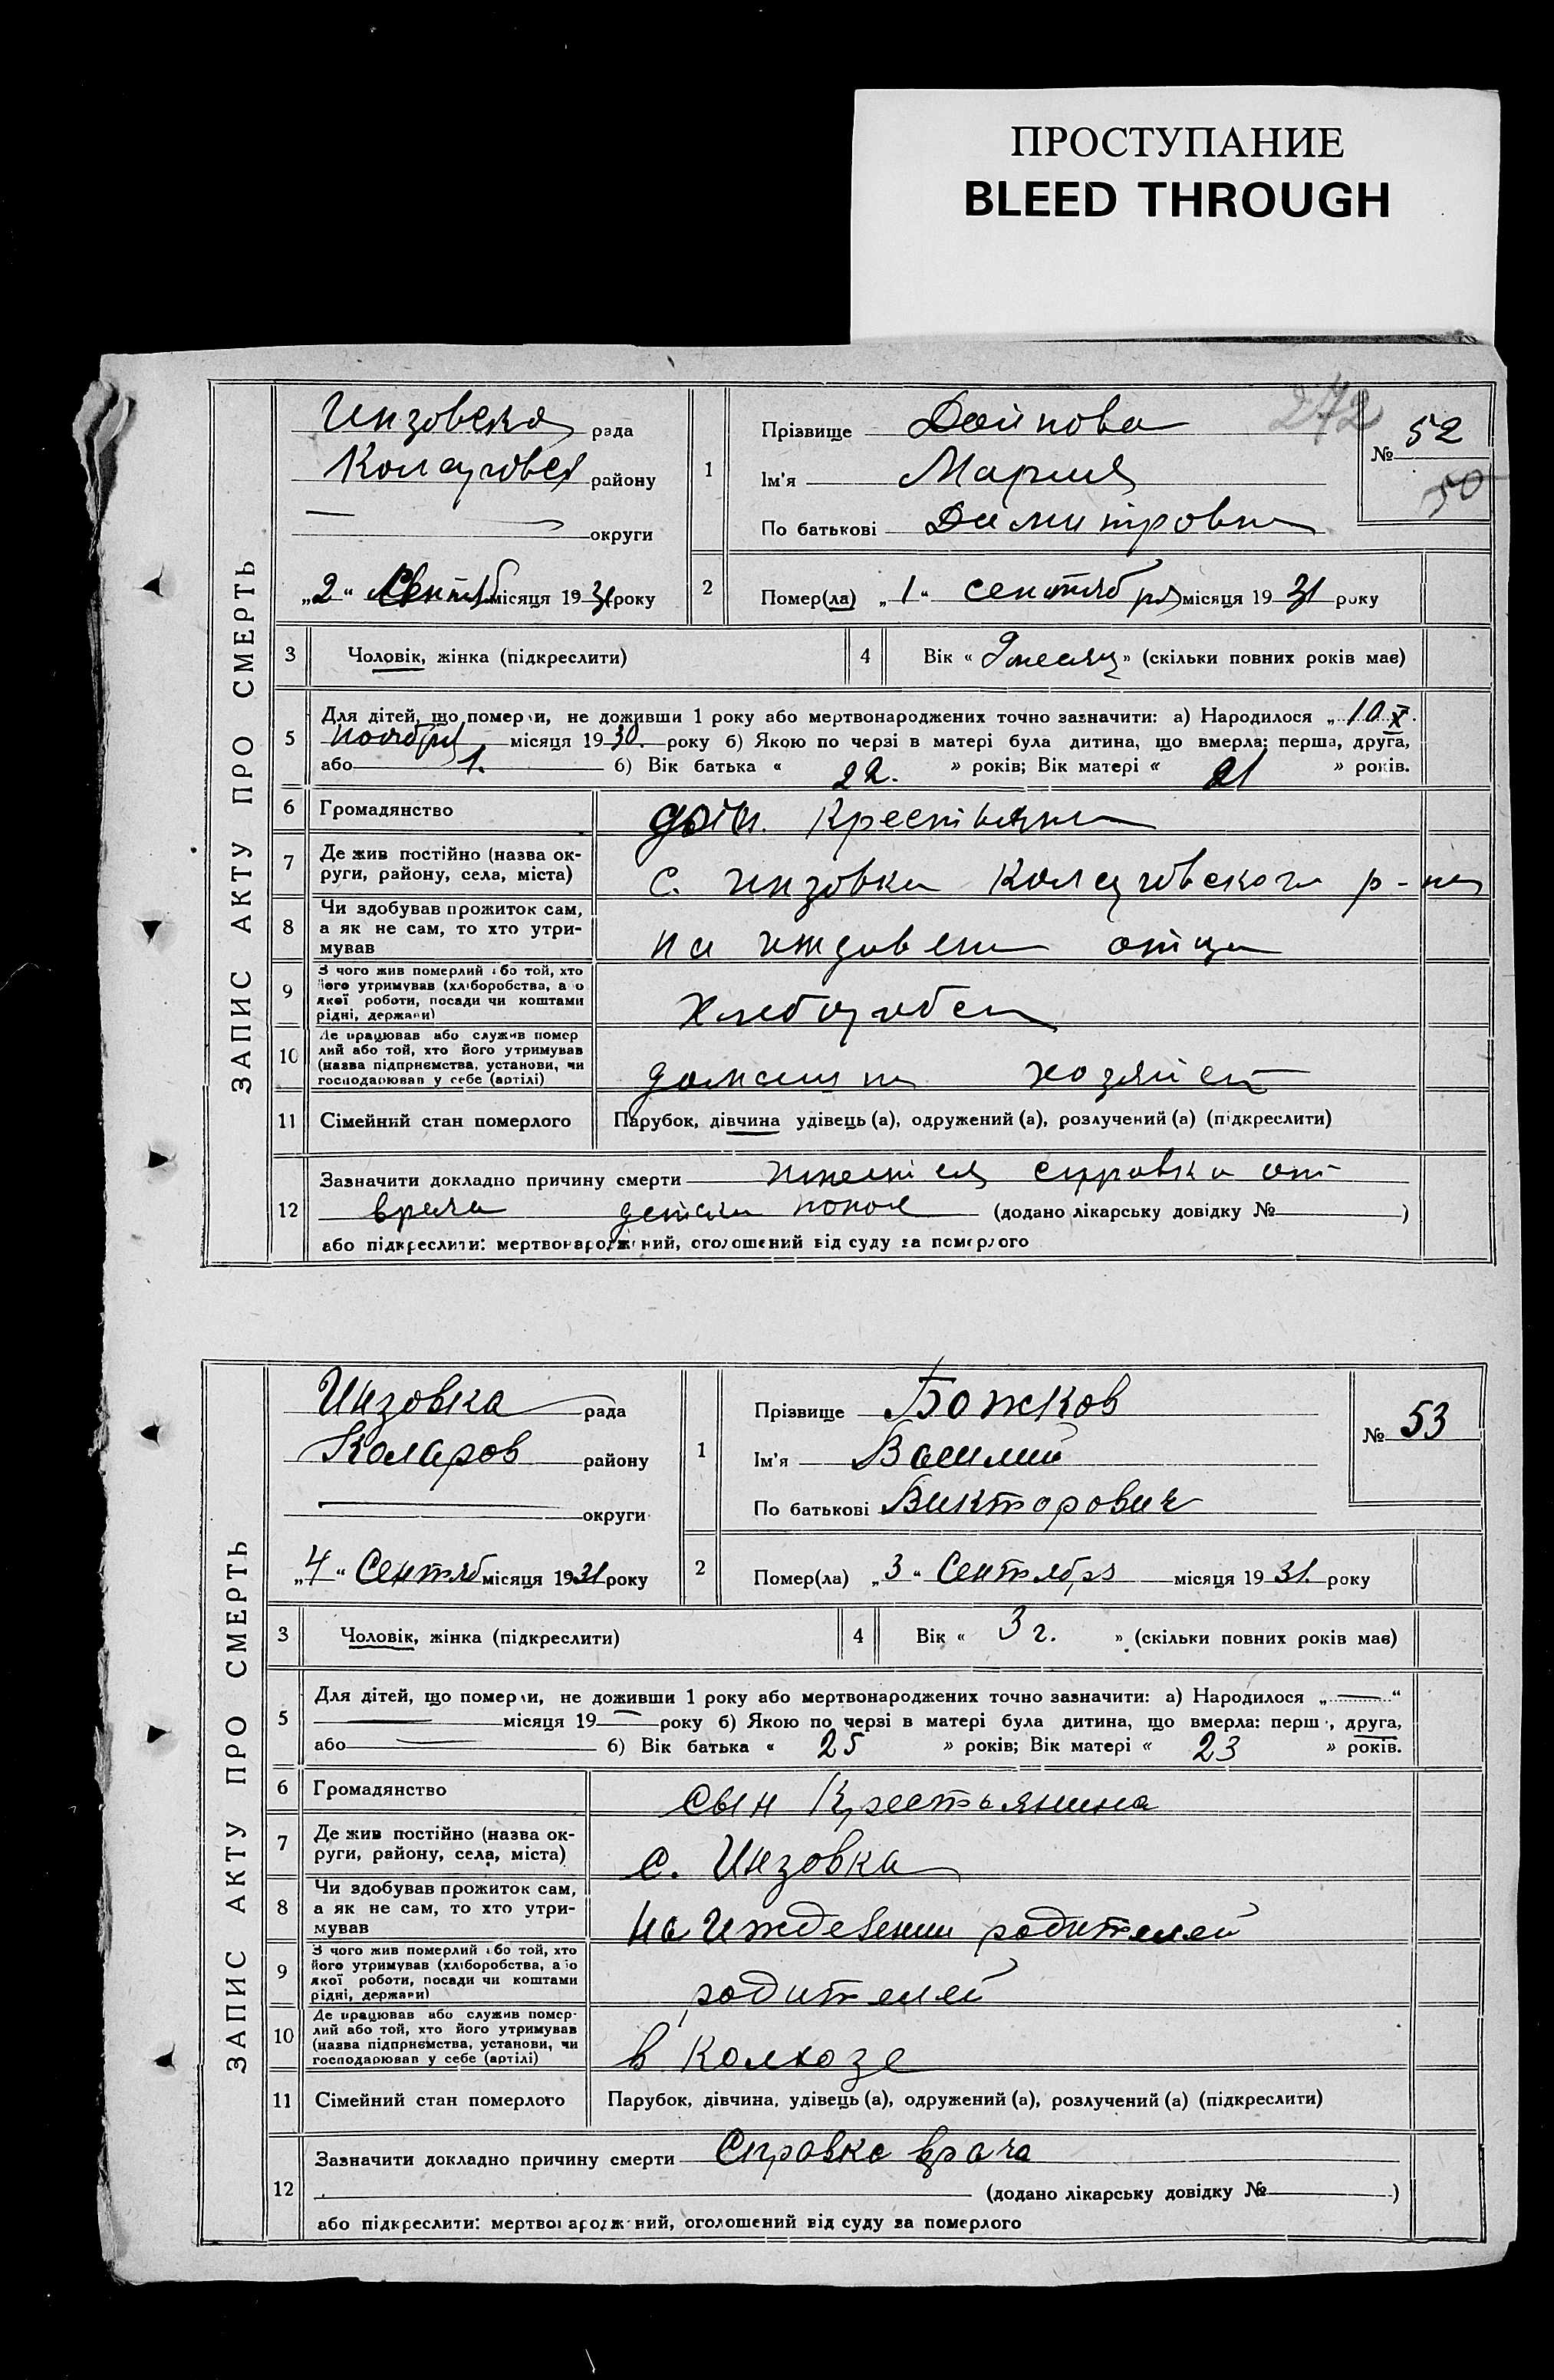 ПРОСТУПАНИЕ
BLEED THROUGH
272
ЗАПИС АКТУ ПРО СМЕРТЬ
Инзовска рада
района району
округи
„2“ Сентяб місяця 1931 року
1
Прізвище Дойнова
Ім'я Мария
По батькові Димитровна
№ 52
50
2
Помер(ла) „1“ сентября місяця 1931 року
3
Чоловік, жінка (підкреслити)
4
Вік « 9 месяц » (скільки повних років має)
5
Для дітей, що померли, не доживши 1 року або мертвонароджених точно зазначити: а) Народилося „10 X
ноября місяця 1930. року б) Якою по черзі в матері була дитина, що вмерла: перша, друга,
або 1. б) Вік батька « 22. » років; Вік матері « 21 » років.
6
Громадянство
крестьянина
7
Де жив постійно (назва ок-
руги, району, села, міста)
с. Инзовка Коларовского р-на
8
Чи здобував прожиток сам,
а як не сам, то хто утри-
мував
на иждивени отца
9
З чого жив померлий або той, хто
його утримував (хліборобства, або
якої роботи, посади чи коштами
рідні, держави)
10
Де працював або служив помер
лий або той, хто його утримував
(назва підприємства, установи, чи
господарював у себе (артілі)
11
Сімейний стан померлого
Парубок, дівчина удівець (а), одружений (а), розлучений (а) (підкреслити)
12
Зазначити докладно причину смерти имеется справка от
врача (додано лікарську довідку № )
або підкреслити: мертвонароджений, оголошений від суду за померлого
ЗАПИС АКТУ ПРО СМЕРТЬ
Инзовка рада
Коларов району
округи
„4“ Сентяб місяця 1931 року
1
Прізвище Божков
Ім'я Василий
По батькові Викторович
№ 53
2
Помер(ла) „3“ Сентября місяця 1931. року
3
Чоловік, жінка (підкреслити)
4
Вік « 3 г. » (скільки повних років має)
5
Для дітей, що померли, не доживши 1 року або мертвонароджених точно зазначити: а) Народилося „ “
місяця 19 року б) Якою по черзі в матері була дитина, що вмерла: перш, друга,
або б) Вік батька « 25 » років; Вік матері « 23 » років.
6
Громадянство
сын Крестьянина
7
Де жив постійно (назва ок-
руги, району, села, міста)
с. Инзовка
8
Чи здобував прожиток сам,
а як не сам, то хто утри-
мував
на иждевении родителей
9
З чого жив померлий або той, хто
його утримував (хліборобства, або
якої роботи, посади чи коштами
рідні, держави)
родителей
10
Де працював або служив помер-
лий або той, хто його утримував
(назва підприємства, установи, чи
господарював у себе (артілі)
в Колхозе
11
Сімейний стан померлого
Парубок, дівчина, удівець (а), одружений (а), розлучений (а) (підкреслити)
12
Зазначити докладно причину смерти Справка врача
(додано лікарську довідку № )
або підкреслити: мертвонароджений, оголошений від суду за померлого